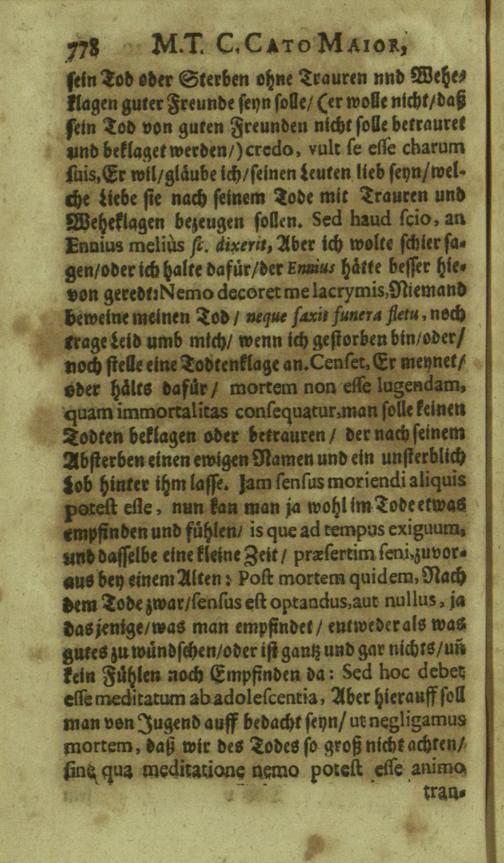 778 M.T. C. CATO MAIOR,
sein Tod oder Sterben ohne Trauren nnd Wehe-
klagen guter Freunde seyn solle/ (er wolle nicht/daß
sein Tod von guten Freunden nicht solle betrauret
und beklaget werden/) credo, vult se esse charum
suis, Er wil/gläube ich/seinen Leuten lieb seyn/wel-
che Liebe sie nach seinem Tode mit Trauren und
Weheklagen bezeugen sollen. Sed haud scio, an
Ennius meliùs sc. dixerit, Aber ich wolte schier sa-
gen/oder ich halte dafür/der Ennius hätte besser hie-
von geredt: Nemo decoret me lacrymis, Niemand
beweine meinen Tod/ neque faxit funera fletu, noch
trage Leid umb mich/ wenn ich gestorben bin/oder/
noch stelle eine Todtenklage an. Censet, Er meynet/
oder hälts dafür/ mortem non esse lugendam,
quam immortalitas consequatur, man solle keinen
Todten beklagen oder betrauren/ der nach seinem
Absterben einen ewigen Namen und ein unsterblich
Lob hinter ihm lasse. Jam sensus moriendi aliquis
potest esse, nun kan man ja wohl im Tode etwas
empfinden und fühlen/ is que ad tempus exiguum,
und dasselbe eine kleine Zeit/ præsertim seni, zuvor-
aus bey einem Alten: Post mortem quidem, Nach
dem Tode zwar/sensus est optandus, aut nullus, ja
dasjenige/was man empfindet/ entweder als was
gutes zu wündschen/oder ist gantz und gar nichts/uñ
kein Fühlen noch Empfinden da: Sed hoc debet
esse meditatum ab adolescentia, Aber hierauff soll
man von Jugend auff bedacht seyn/ ut negligamus
mortem, daß wir des Todes so groß nicht achten/
sine qua meditatione nemo potest esse animo
tran-